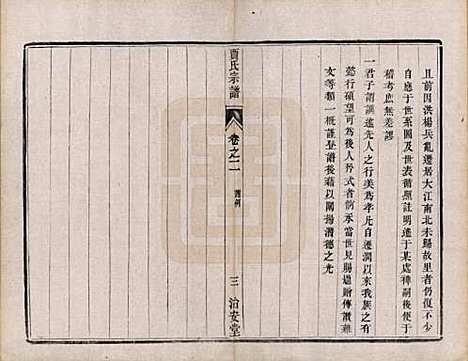 且前因洪楊兵亂遷居大江南北未歸故里者仍復不少
自應于世系圖及世表備照註明遷于某處裨嗣後便于
稽考庶無差謬
一君子謂譔述先人之行美為孝凡自遷潤以來我族之有
懿行碩望可為後人矜式者前承當世見賜壚贈傳讚雜
文等類一概謹登譜後藉以闡揚潛德之光
賈氏宗譜
卷之二
譜例
三
治安堂